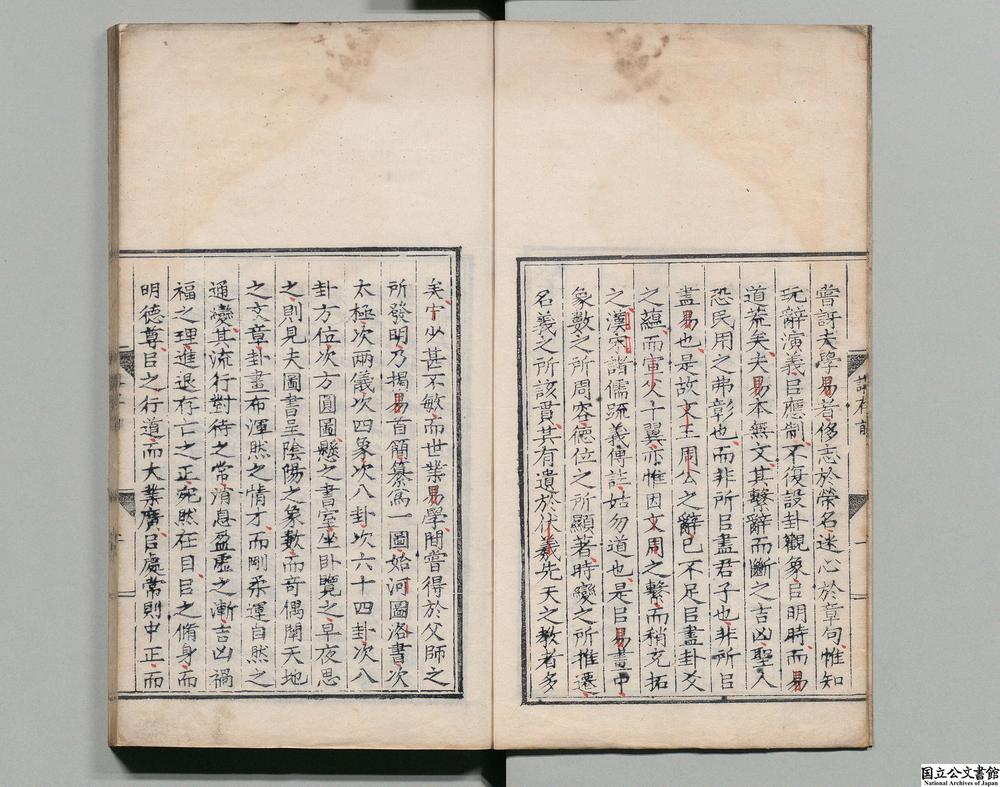 嘗訝夫學易者侈志於榮名迷心於章句惟知
玩辭演義㠯應制不復設卦觀象㠯明時而易
道荒矣夫易本無文其繫辭而斷之吉凶聖人
恐民用之弗彰也而非所㠯盡君子也非所㠯
盡易也是故文王周公之辭已不足㠯盡卦爻
之蘊而宣父十翼亦惟因文周之繫而稍充拓
之漢宋諸儒疏義傳註姑勿道也是㠯易畫中
象數之所周容德位之所顯著時變之所推遷
名義之所該貫其有遺於伏羲先天之教者多
矣宁少甚不敏而世業易學間嘗得於父師之
所發明乃揭易首簡纂爲一圖始河圖洛書次
太極次兩儀次四象次八卦次六十四卦次八
卦方位次方圓圖懸之書室坐臥覽之早夜思
之則見夫圖書呈陰陽之象數而奇偶闡天地
之文章卦畫布渾然之情才而剛柔運自然之
通變其流行對待之常消息盈虛之漸吉凶禍
福之理進退存亡之正宛然在目㠯之脩身而
明德尊㠯之行道而大業廣㠯處常則中正而
国立公文書館
National Archives of Japan